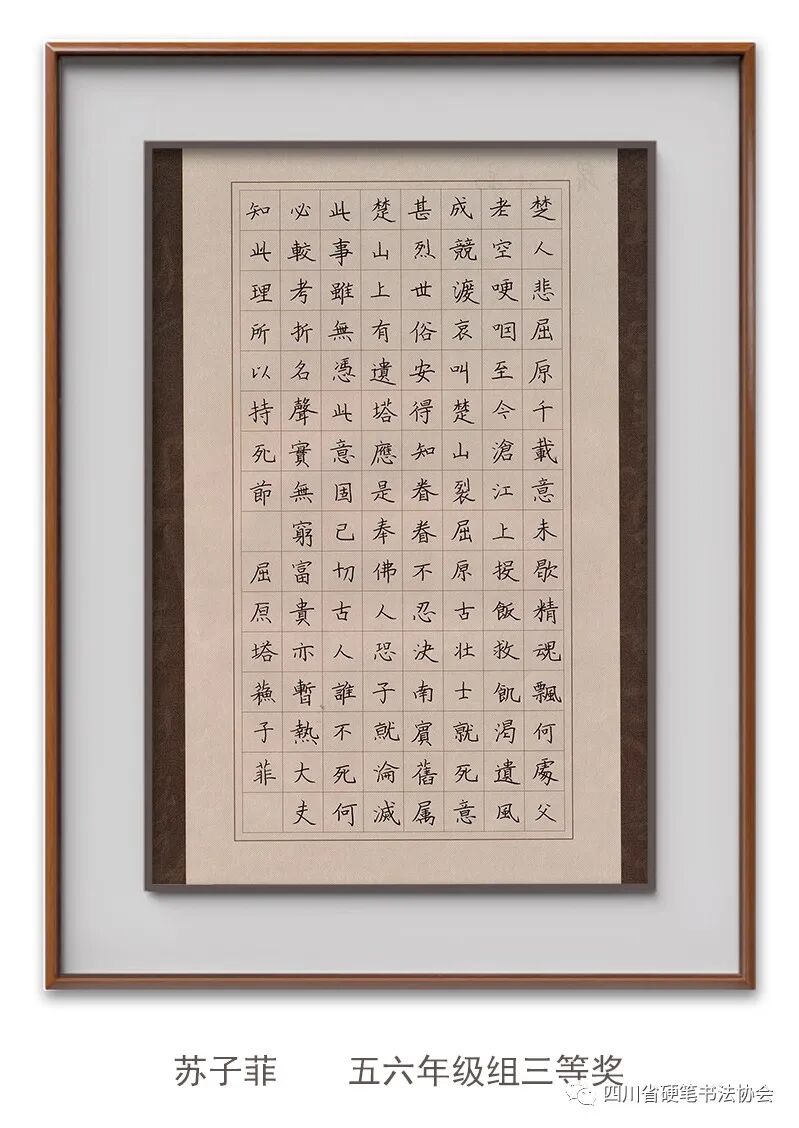 楚人悲屈原千載意未歇精魂飄何處父
老空哽咽至今滄江上投飯救飢渴遺風
成競渡哀叫楚山裂屈原古壯士就死意
甚烈世俗安得知眷眷不忍決南賓舊属
楚山上有遺塔應是奉佛人恐子就淪滅
此事雖無憑此意固已切古人誰不死何
必較考折名聲實無窮富貴亦暫熱大夫
知此理所以持死節 屈原塔蘓子菲
苏子菲 五六年级组三等奖
四川省硬笔书法协会